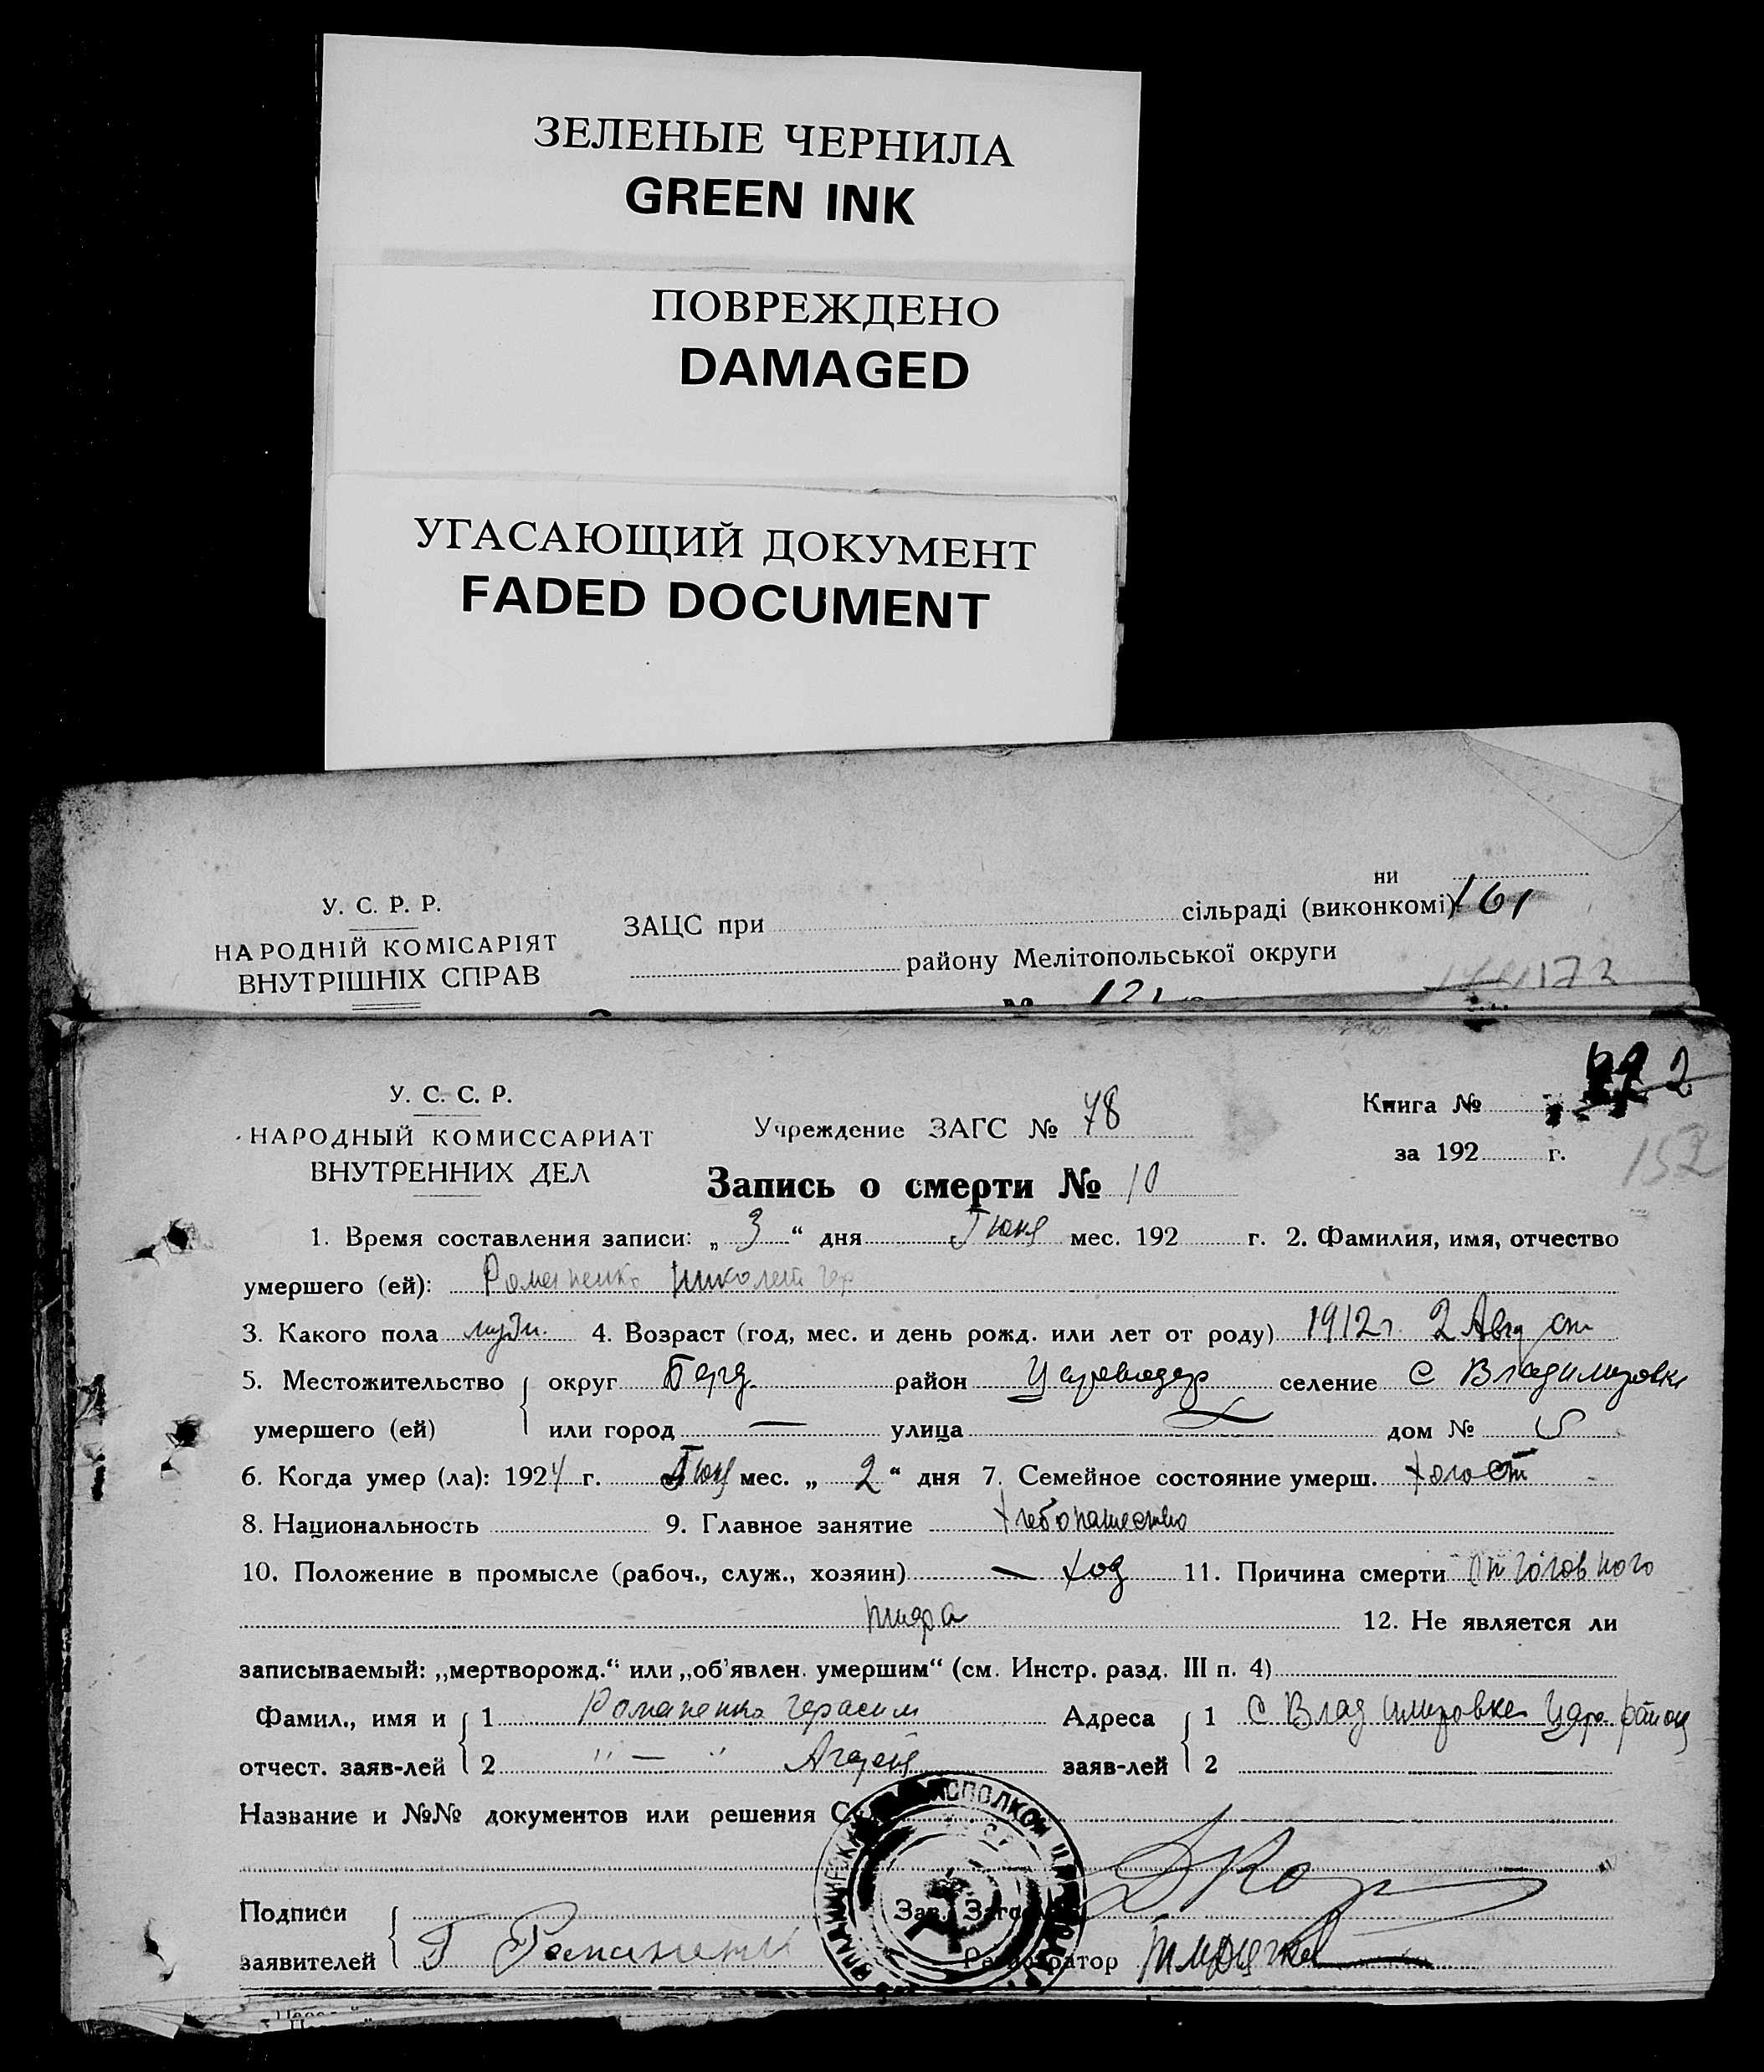 ЗЕЛЕНЫЕ ЧЕРНИЛА
GREEN INK
ПОВРЕЖДЕНО
DAMAGED
УГАСАЮЩИЙ ДОКУМЕНТ
FADED DOCUMENT
ни
У. С. Р. Р.
ЗАЦС при сільраді (виконкомі) 161
НАРОДНІЙ КОМІСАРІЯТ
району Мелітопольської округи
ВНУТРІШНІХ СПРАВ
У. С. С. Р.
НАРОДНЫЙ КОМИССАРИАТ
ВНУТРЕННИХ ДЕЛ
Учреждение ЗАГС № 78
Книга №
за 192 г.
152
Запись о смерти № 10
1. Время составления записи: „ 3 “ дня Июня мес. 192 г. 2. Фамилия, имя, отчество
умершего (ей): Романенко Николай Гер
3. Какого пола мужч. 4. Возраст (год, мес. и день рожд. или лет от роду) 1912 г. 2 Август
5. Местожительство округ Берд. район Цареводар селение С Владимировке
умершего (ей) или город — улица — дом №
6. Когда умер (ла): 1924 г. Июня мес. „ 2 “ дня 7. Семейное состояние умерш. холост
8. Национальность 9. Главное занятие хлебопашество
10. Положение в промысле (рабоч., служ., хозяин) — хоз 11. Причина смерти От головного
тифа 12. Не является ли
записываемый: „мертворожд.“ или „об'явлен. умершим“ (см. Инстр. разд. III п. 4)
Фамил., имя и 1 Романенко Герасим Адреса 1 С Владимировке Царе. район
отчест. заяв-лей 2 " — " заяв-лей 2
Название и №№ документов или решения С
Зав. Заго
Подписи
заявителей Г Романенко
Регистратор